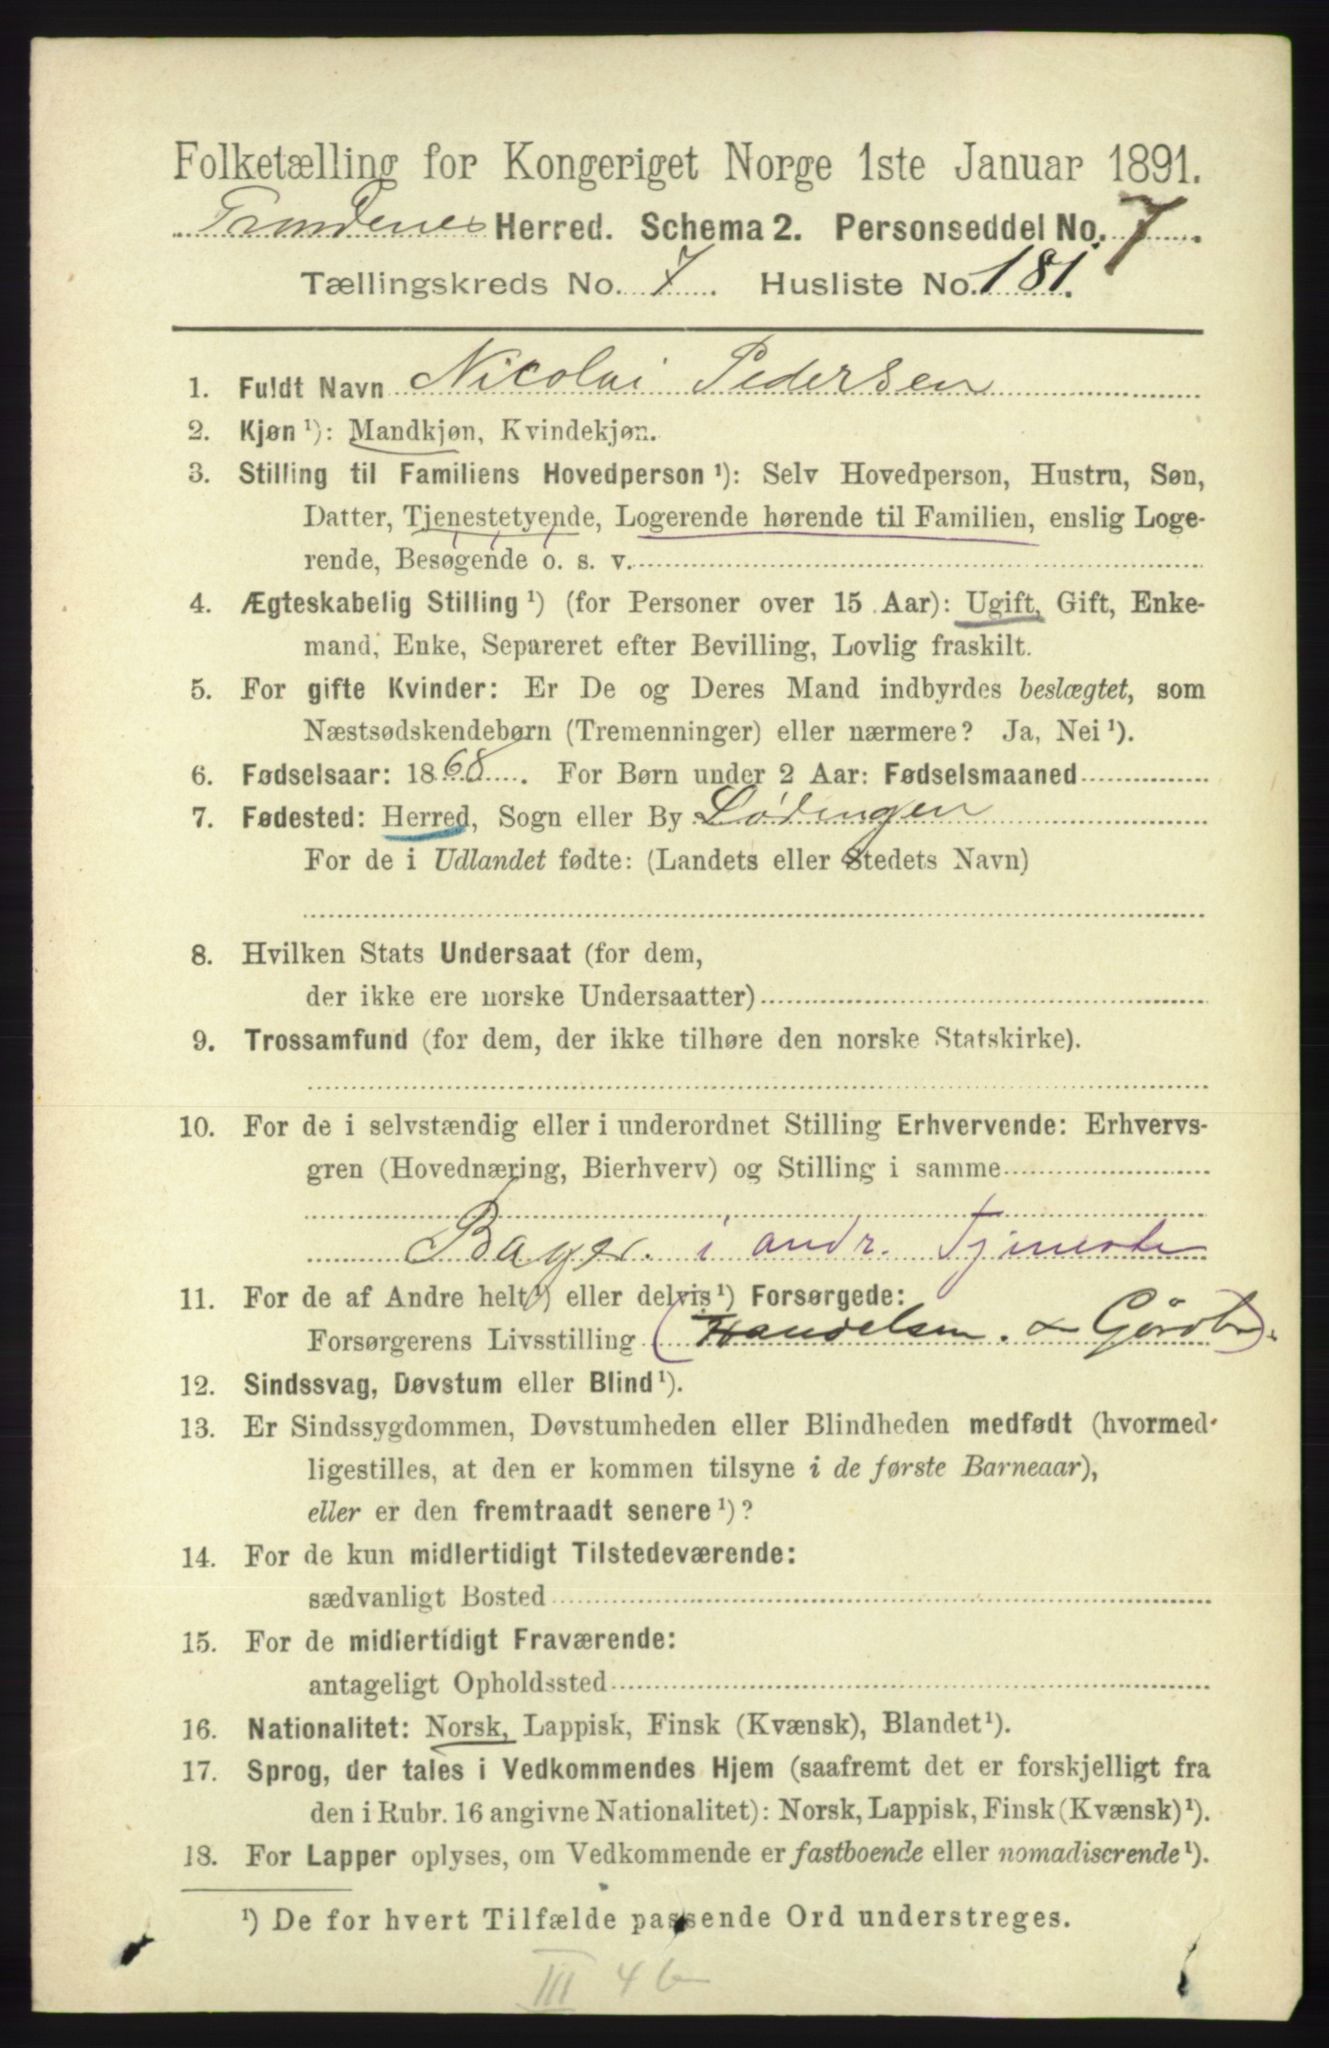 Folketælling for Kongeriget Norge 1ste Januar 1891.
Trondenes Herred. Schema 2. Personseddel No. 7
Tællingskreds No. 7. Husliste No. 181.
1. Fuldt Navn Nicolai Pedersen
2. Kjøn ¹): Mandkjøn, Kvindekjøn.
3. Stilling til Familiens Hovedperson ¹): Selv Hovedperson, Hustru, Søn,
Datter, Tjenestetyende, Logerende hørende til Familien, enslig Loge-
rende, Besøgende o. s. v.
4. Ægteskabelig Stilling ¹) (for Personer over 15 Aar): Ugift, Gift, Enke-
mand, Enke, Separeret efter Bevilling, Lovlig fraskilt.
5. For gifte Kvinder: Er De og Deres Mand indbyrdes beslægtet, som
Næstsødskendebørn (Tremenninger) eller nærmere? Ja, Nei ¹).
6. Fødselsaar: 1868. For Børn under 2 Aar: Fødselsmaaned
7. Fødested: Herred, Sogn eller By Lødingen
For de i Udlandet fødte: (Landets eller Stedets Navn)
8. Hvilken Stats Undersaat (for dem,
der ikke ere norske Undersaatter)
9. Trossamfund (for dem, der ikke tilhøre den norske Statskirke).
10. For de i selvstændig eller i underordnet Stilling Erhvervende: Erhvervs-
gren (Hovednæring, Bierhverv) og Stilling i samme
Bager. i andr. Tjeneste
11. For de af Andre helt ¹) eller delvis ¹) Forsørgede:
Forsørgerens Livsstilling (Handelsm. &
12. Sindssvag, Døvstum eller Blind ¹).
13. Er Sindssygdommen, Døvstumheden eller Blindheden medfødt (hvormed-
ligestilles, at den er kommen tilsyne i de første Barneaar),
eller er den fremtraadt senere ¹)?
14. For de kun midlertidigt Tilstedeværende:
sædvanligt Bosted
15. For de midlertidigt Fraværende:
antageligt Opholdssted
16. Nationalitet: Norsk, Lappisk, Finsk (Kvænsk), Blandet ¹).
17. Sprog, der tales i Vedkommendes Hjem (saafremt det er forskjelligt fra
den i Rubr. 16 angivne Nationalitet): Norsk, Lappisk, Finsk (Kvænsk) ¹).
18. For Lapper oplyses, om Vedkommende er fastboende eller nomadiserende ¹).
¹) De for hvert Tilfælde passende Ord understreges.
III 4 b